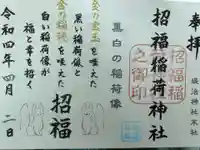 奉拝
堀治神社末社
招福稲荷神社
招福稲荷之御印
黒白の稲荷像
金の宝玉を咥えた
黒い稲荷像と
金の稲穂を咥えた
白い稲荷像が
福と幸を招く
招福
令和四年四月二日